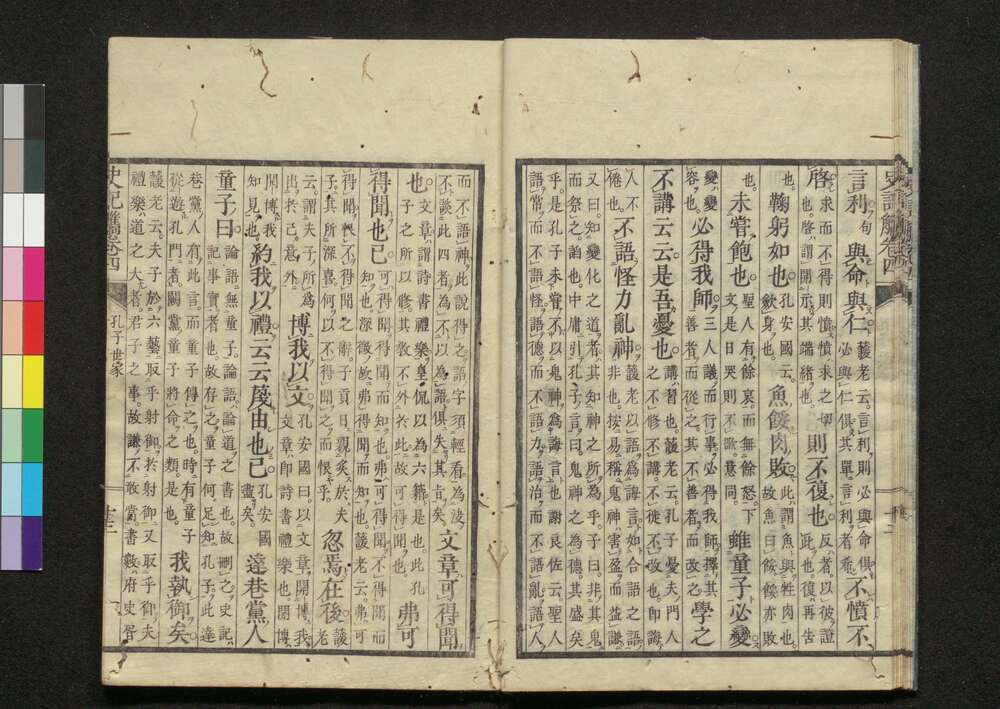 言利句與命與仁蘐老云。言利則必與命俱。
必與仁俱。其單言利者希。不憤不
啓。求而不得則憤。求之切
也。啓謂開示其端緒也。則不復也反者。以彼證
此也。復再告
也。鞠躬如也孔安國云。
歛身也。魚餒肉敗此謂魚與牲肉也。
故魚曰餒。餒亦敗
也。未嘗飽也聖人有餘哀。而無餘怒。下
文是日哭則不歌。意同。雖童子必變
變變
容也。必得我師三人議而行事。必得我師。擇其
善者而從之。其不善者而改之學之
不講云云是吾憂也講習也。蘐老云。孔子憂夫門人
之不修不講。不徙不改也。即誨
人不
倦也。不語怪力亂神蘐老以語為誨言。如合語之語。
非也。按易稱鬼神害盈而益謙。
又曰。知變化之道者。其知神之所為乎。子曰。非其鬼
而祭之。諂也。中庸引孔子之言曰。鬼神之為德。其盛矣
乎。是孔子未嘗不以鬼神為誨言也。謝良佐云。聖人
語常而不語怪。語德而不語力。語治而不語亂。語人
而不語神。此說得之。語字須輕看為
不談此四者。為不以為語。俱失其旨矣。文章可得聞
也。文章謂詩書禮樂。皇侃以為六籍是也。此孔
子之所以修。其教不外於此。故可得聞也。弗可
得聞也已可得聞。可得聞而知也。弗可得聞。不得聞而
知也。深微故弗得聞而知也。蘐老云。弗可
得聞。恨不得聞之辭。子貢日親炙於夫
子。其所深喜。何以不得聞之而恨乎。忽焉在後蘐老
云。謂夫子所為
出於己意外。博我以文孔安國曰。以文章開博我。
文章即詩書禮樂也。開博
開博我
知見也。約我以禮云云蔑由也已孔安國
盡矣。達巷黨人
童子曰論語無童子。論語論道之書也。故刪之。史記
記事實者也。故存之。童子何足知孔子。此達
巷黨人有此言。而童子傳之也。時有童子
從遊孔門者。闕黨童子將命之類是也。我執御矣
蘐老云。夫子於六藝取乎射御。於射御又取乎御。夫
禮樂道之大者。君子之事。故謙不敢當。書數府史胥
史記觿卷四
孔子世家